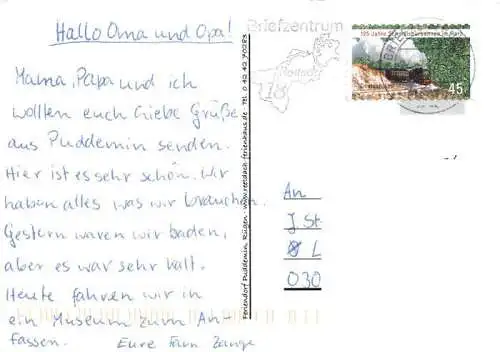 Hallo Oma und Opa!
Mama, Papa und ich
wollten euch Liebe Grüße
aus Puddemin senden.
Hier ist es sehr schön. Wir
haben alles was wir brauchen.
Gestern waren wir baden,
aber es war sehr kalt.
Heute fahren wir in
ein Museum zum An-
fassen. Eure Fam Zange
Feriendorf Puddemin, Rügen · www.reetdach-ferienhaus.de · Tel. 0 42 42 70283
Briefzentrum
18
125 Jahre Schmalspurbahnen im Harz
45
An
J. St
L
030